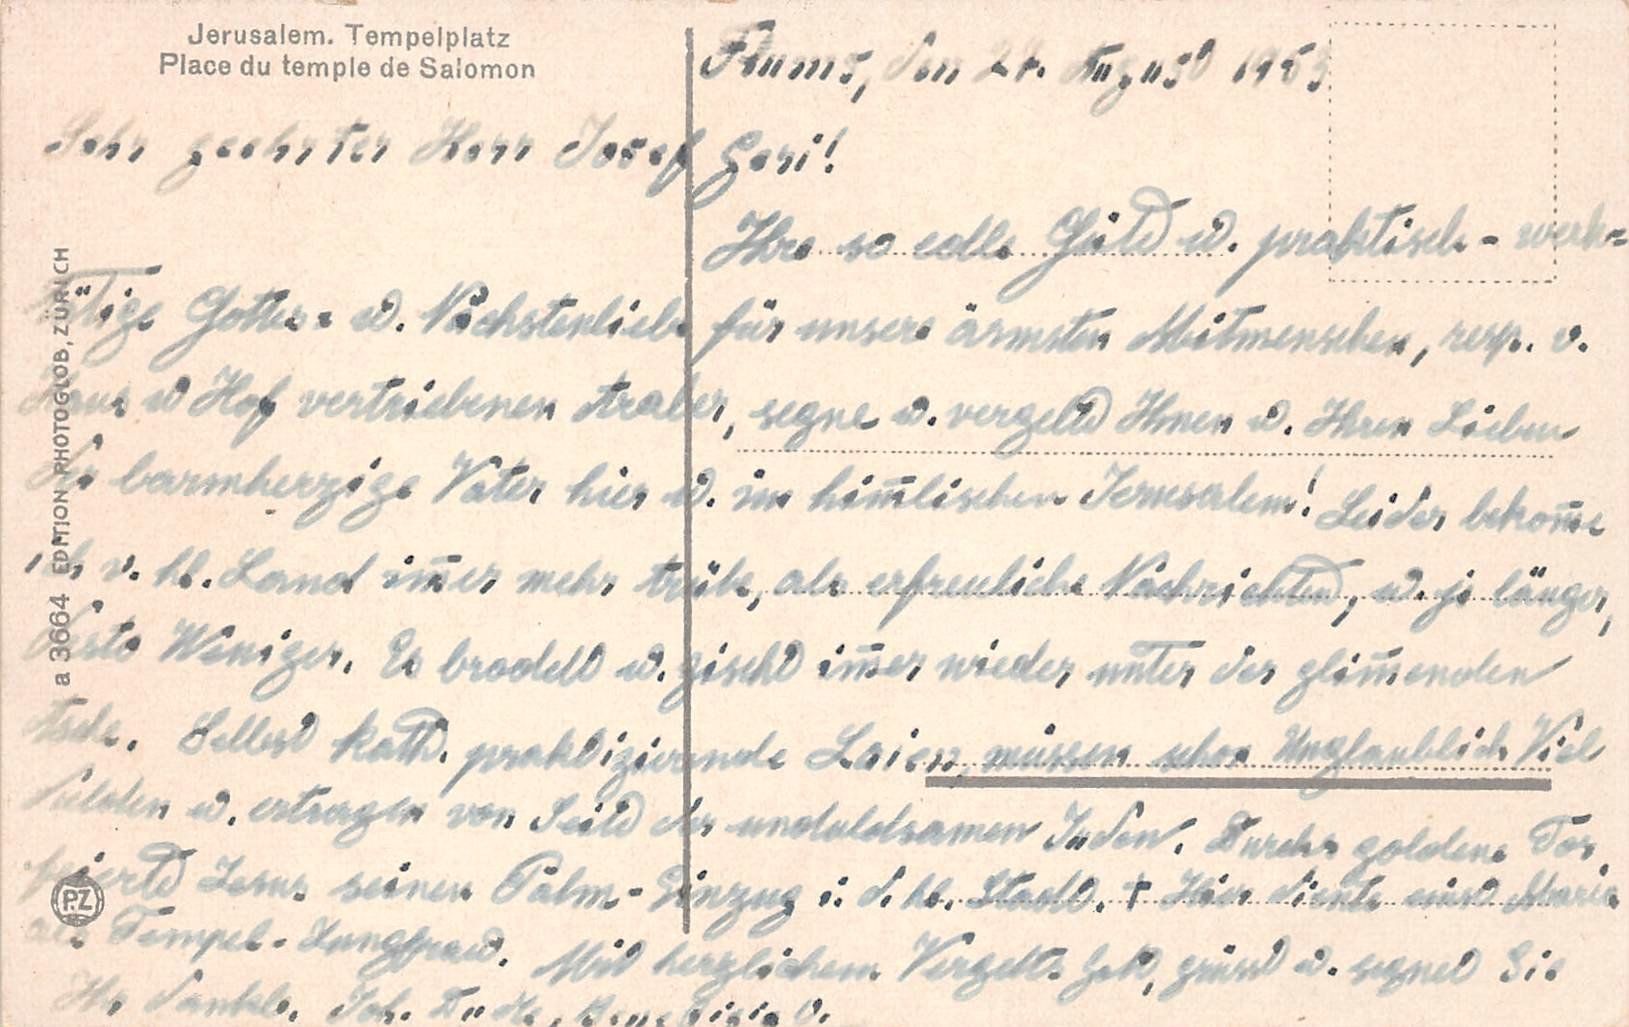 Jerusalem. Tempelplatz
Place du temple de Salomon
Flums, den 27. August 1953
Sehr geehrter Herr Josef Geri!
Ihre so edle Güte u. praktisch-werk-
tätige Gottes- u. Nächstenliebe für unsere ärmsten Mitmenschen, resp. v.
Haus u Hof vertriebenen Araber, segne u. vergelte Ihnen u. Ihren Lieben
der barmherzige Vater hier u. im him̅lischen Jerusalem! Leider bekom̅e
ich v. hl. Land im̅er mehr trübe, als erfreuliche Nachrichten, u. je länger,
desto Weniger. Es brodelt u. zischt im̅er wieder unter der glim̅enden
Asche. Selbst kath. praktizierende Laien, müssen schon Unglaublich Viel
dulden u. ertragen von Seite der unduldsamen Juden. Durchs goldene Tor,
feierte Jesus seinen Palm-Einzug i. d. hl. Stadt. † Hier diente einst Maria
als Tempel-Jungfrau. Mit herzlichem Vergelts Gott, grüsst u. segnet Sie
Ihr dankb. Joh.
a 3664 EDITION PHOTOGLOB, ZÜRICH
P.Z